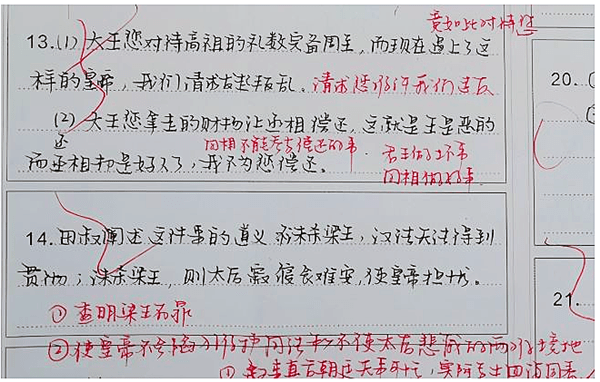 竟如此对待您
13.(1) 大王您对待高祖的礼数完备周至,而现在遇上了这
样的皇帝,我们请求发起叛乱。请求您准许我们造反
20.
(2) 大王您拿走的财物让丞相偿还,这就是王是恶的
还
而丞相却是好人了,我不为您偿还。
因相不能参与偿还的事
君王做坏事
国相做好事.
14.田叔阐述这件事的道义 诛杀梁王,汉法无法得到
贯彻;诛杀梁王,则太后寝食难安,使皇帝担忧。
21.
①查明梁王有罪
②使皇帝不会陷入维护国法和不使太后悲戚的两难境地